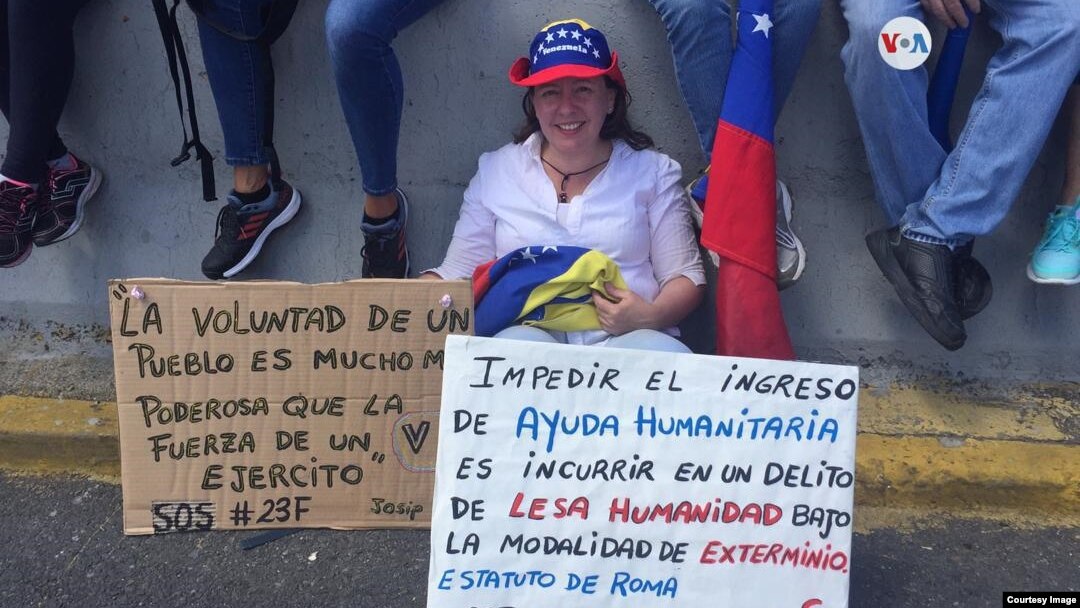 Venezuela
VOA
"LA VOLUNTAD DE UN
PUEBLO ES MUCHO M
PODEROSA QUE LA
FUERZA DE UN
EJERCITO"
V
SOS #23F Josip
IMPEDIR EL INGRESO
DE AYUDA HUMANITARIA
ES INCURRIR EN UN DELITO
DE LESA HUMANIDAD BAJO
LA MODALIDAD DE EXTERMINIO.
ESTATUTO DE ROMA
Courtesy Image